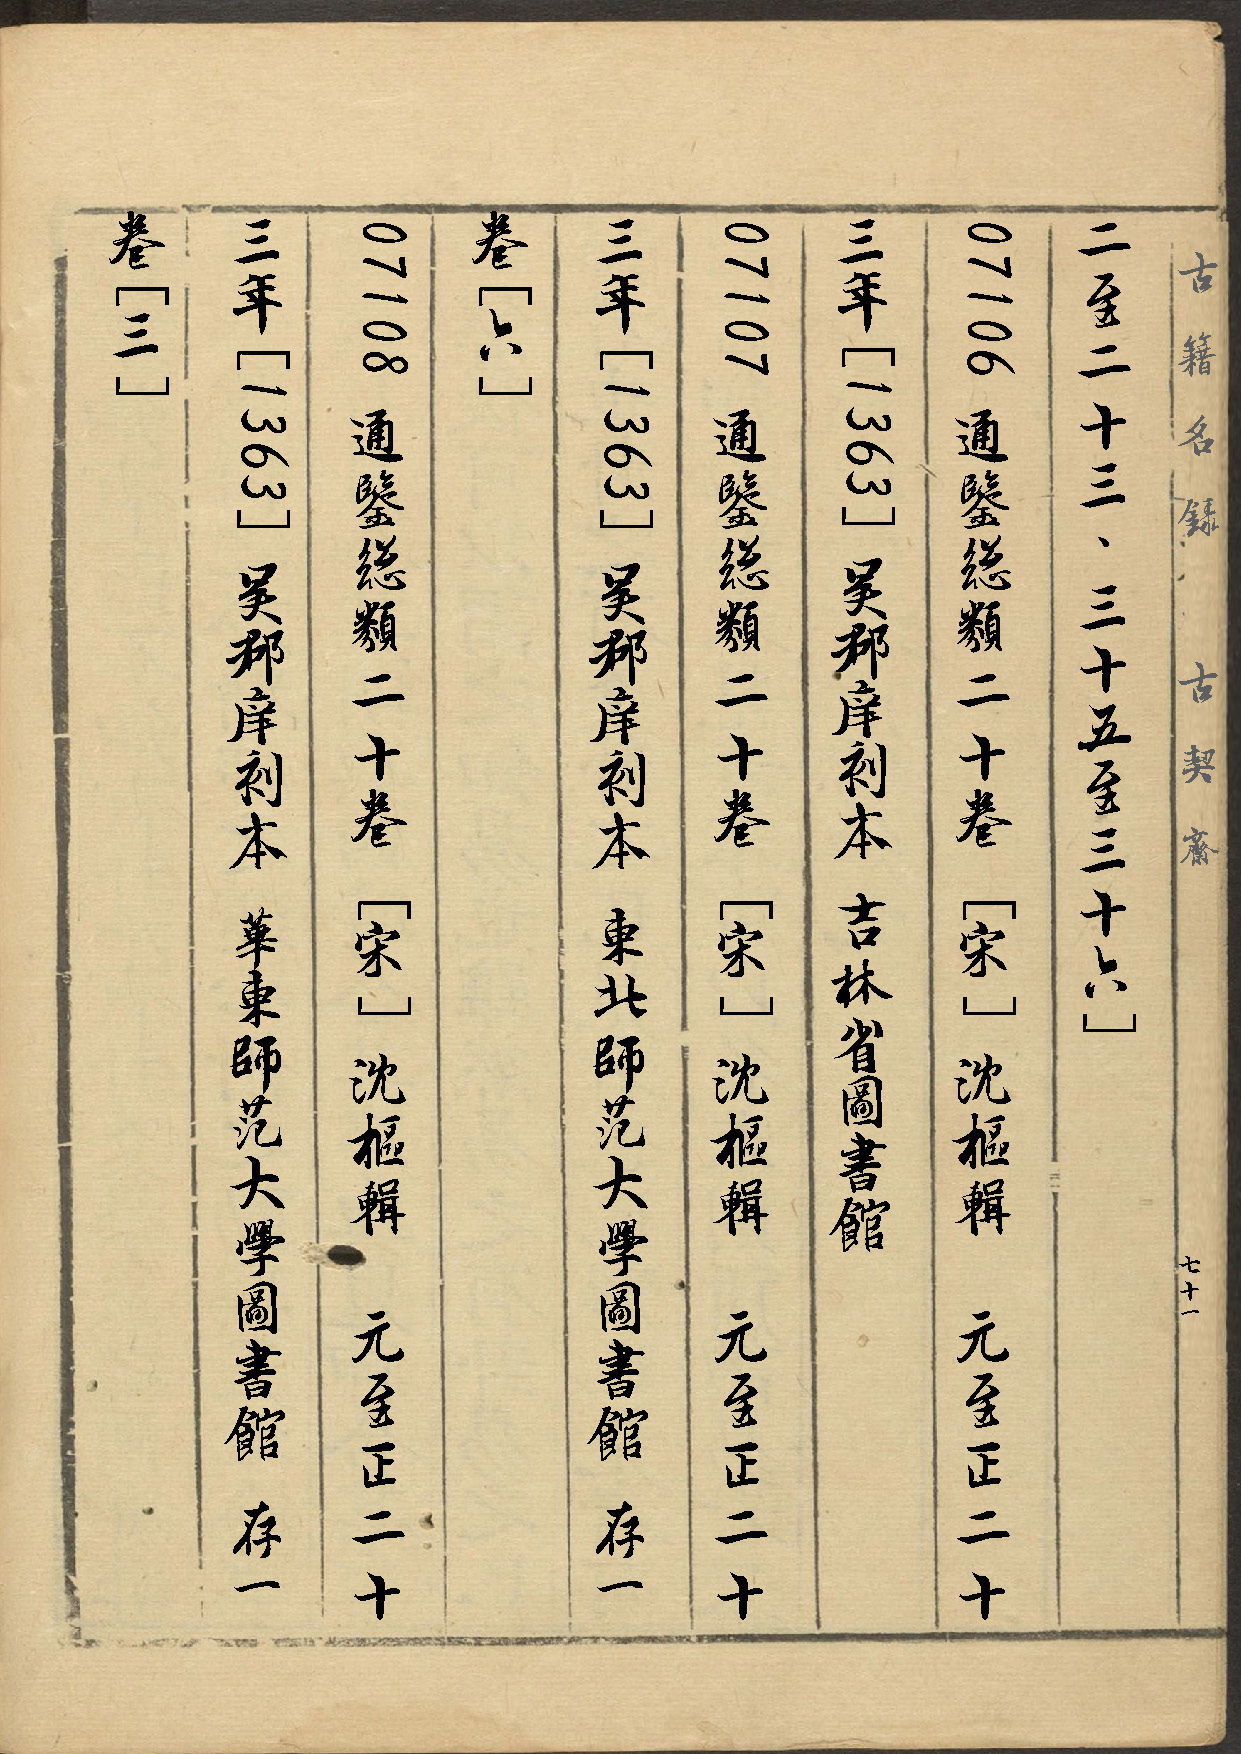 古籍名錄 古契齋
七十一
二至二十三、三十五至三十六]
07106 通鑒總類二十卷 [宋] 沈樞輯 元至正二十
三年[1363]吴郡庠刻本 吉林省圖書館
07107 通鑒總類二十卷 [宋] 沈樞輯 元至正二十
三年[1363]吴郡庠刻本 東北師范大學圖書館 存一
卷[六]
07108 通鑒總類二十卷 [宋] 沈樞輯 元至正二十
三年[1363]吴郡庠刻本 華東師范大學圖書館 存一
卷[三]